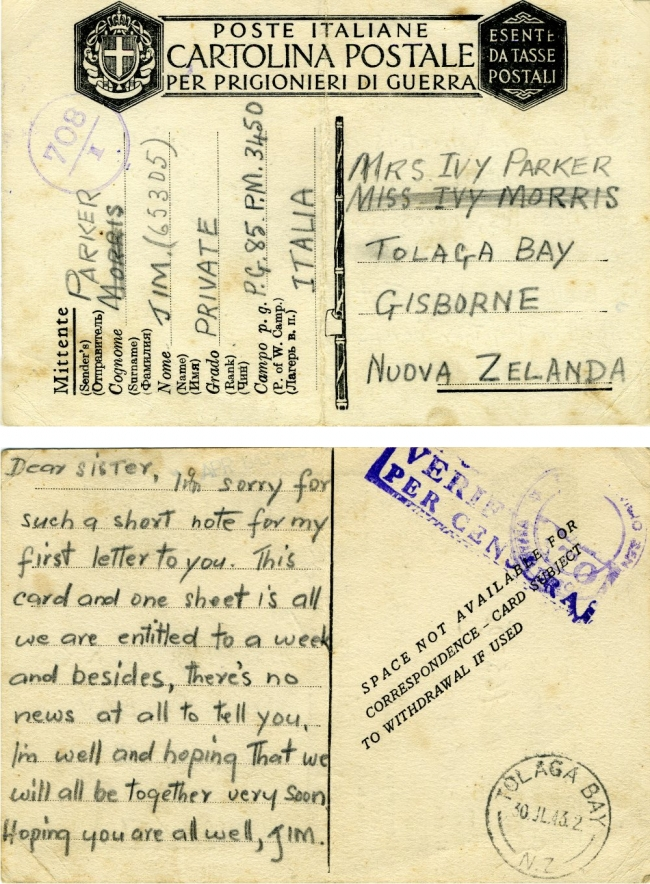 POSTE ITALIANE
CARTOLINA POSTALE
PER PRIGIONIERI DI GUERRA
ESENTE
DA TASSE
POSTALI
708
I
Mittente
(Sender's)
(Отправитель)
PARKER
Cognome MORRIS
(Surname)
(Фамилия)
Nome JIM. (65305)
(Name)
(Имя)
Grado PRIVATE
(Rank)
(Чин)
Campo p. g. P.G. 85. P.M. 3450
(P. of W. Camp.)
(Лагерь в. п.) ITALIA
MRS IVY PARKER
MISS IVY MORRIS
TOLAGA BAY
GISBORNE
NUOVA ZELANDA
Dear sister, I'm sorry for
such a short note for my
first letter to you. This
card and one sheet is all
we are entitled to a week
and besides, there's no
news at all to tell you.
I'm well and hoping That we
will all be together very soon
Hoping you are all well, JIM.
PER CENSURA
SPACE NOT AVAILABLE FOR
CORRESPONDENCE - CARD SUBJECT
TO WITHDRAWAL IF USED
TOLAGA BAY
30 JL.43.2
N.Z.